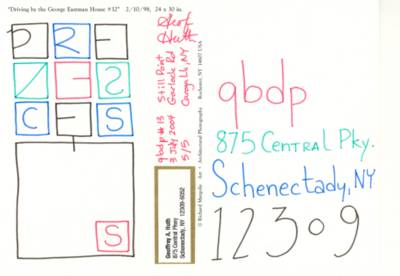 "Driving by the George Eastman House #32" 2/10/98, 24 x 30 in.
PRE
NES
CES
S
Geof
Huth
Still Point
Garlock Rd
Caroga Lk, NY
qbdp #13
3 July 2004
5/5
Geoffrey A. Huth
875 Central Pkwy
Schenectady, NY 12309-6052
© Richard Margolis Art + Architectural Photography Rochester, NY 14607 USA
qbdp
875 CENTRAL Pky.
Schenectady, NY
12309